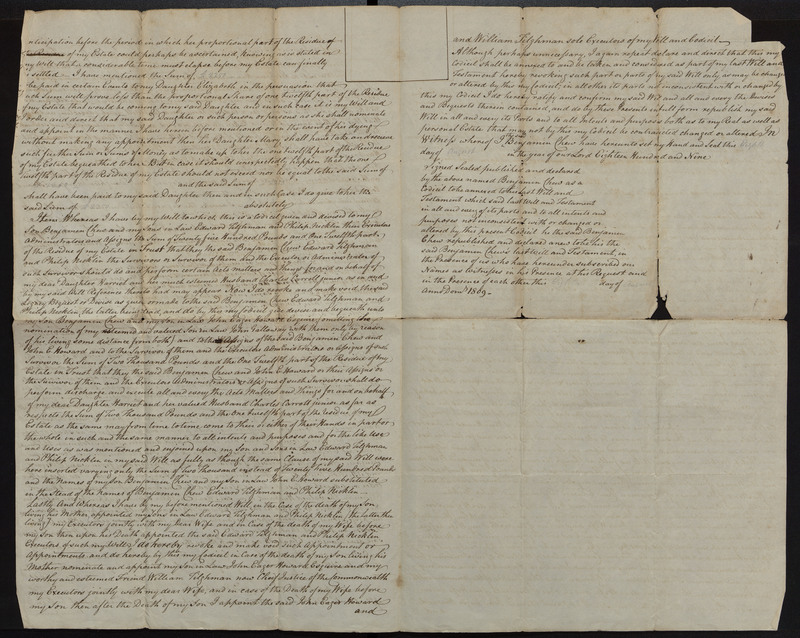 nticipation before the period in which her proportional part of the Residue of
of my Estate could perhaps be ascertained, knowing as is stated in
my will that a considerable time must elapse before my Estate can finally
settled. I have mentioned the Sum of
be paid in certain Events to my Daughter Elizabeth in the persuasion that
such Sum will prove less than the proportional Share of one twelfth part of the Residue
of my Estate that would be coming to my said Daughter and in such Case it is my Will and
I order and direct that my said Daughter or such person or persons as she shall nominate
and appoint in the manner I have herein before mentioned or in the event of her dying
without making any appointment then her Daughter Mary shall have take and receive
such further Sum or Sums of Money as to make up to her the one twelfth part of the Residue
of my Estate bequeathed to her But in case it should unexpectedly happen that the one
twelfth part of the Residue of my Estate should not exceed nor be equal to the said Sum of
and the said Sum of
shall have been paid to my said Daughter then and in such Case I do give to her the
said Sum of absolutely
Item Whereas I have by my Will to which this is a Codicil given and devised to my
Son Benjamin Chew and my Sons in Law Edward Tilghman and Philip Nicklin their Executors
Administrators and Assigns the Sum of Twenty five Hundred Pounds and One Twelfth part
of the Residue of my Estate in Trust that they the said Benjamin Chew Edward Tilghman
and Philip Nicklin the Survivors or Survivor of them And the Executor or Administrator of
such Survivor should do and perform certain Acts matters and things for and on behalf of
my dear Daughter Harriet and her much esteemed Husband Charles Carroll junior as in and
by my said Will Reference thereto had may appear Now I do revoke and make void the said
Legacy Bequest or Devise as given or made to the said Benjamin Chew Edward Tilghman and
Philip Nicklin, the latter being dead, and do by this my Codicil give devise and bequeath unto
my Son Benjamin Chew and my Son in Law John Eager Howard Esquire (omitting the
nomination of my esteemed and valued Son in Law John Galloway with them only by reason
of his living some distance from both) and to the Assigns of the said Benjamin Chew and
John E Howard and to the Survivor of them and the Executors Administrators or Assigns of such
Survivor the Sum of Two Thousand Pounds and the One Twelfth part of the Residue of my
Estate in Trust that they the said Benjamin Chew and John E Howard or their Assigns or
the Survivor of them and the Executors Administrators or Assigns of such Survivor shall do
perform discharge and execute all and every the Acts Matters and things for and on behalf
of my dear Daughter Harriet and her valued Husband Charles Carroll junior as far as
respects the Sum of Two Thousand Pounds and the One twelfth part of the residue of my
Estate as the same may from time to time come to their or either of their Hands in part or
the whole in such and the same manner to all intents and purposes and for the like Use
and Uses as was mentioned and enjoined upon my Son and Sons in Law Edward Tilghman
and Philip Nicklin in my said Will as fully as though the same Clause of my said Will were
here inserted varying only the Sum of Two Thousand instead of Twenty five Hundred Pounds
and the Names of my Son Benjamin Chew and my Son in Law John E Howard substituted
in the stead of the Names of Benjamin Chew Edward Tilghman and Philip Nicklin
Lastly And Whereas I have by my before mentioned Will, in the Case of the death of my Son
living his Mother, appointed my Sons in Law Edward Tilghman and Philip Nicklin (the latter then
living) my Executors jointly with my dear Wife and in Case of the death of my Wife before
my Son then upon his Death appointed the said Edward Tilghman and Philip Nicklin
Executors of such my Will, I do hereby revoke and make void such appointment or
Appointments and do hereby by this my Codicil in Case of the death of my Son living his
Mother nominate and appoint my Son in Law John Eager Howard Esquire and my
worthy and esteemed Friend William Tilghman now Chief Justice of the Commonwealth
my Executors jointly with my dear Wife, and in case of the Death of my Wife before
my Son then after the Death of my Son I appoint the said John Eager Howard
and
and William Tilghman sole Executors of my Will and Codicil
Although perhaps unnecessary, I again repeat declare and direct that this my
Codicil shall be annexed to and be taken and considered as part of my last Will and
Testament hereby revoking such part or parts of my said Will only as may be changed
or altered by this my Codicil; in all other its parts as inconsistent with or changed by
this my Codicil I do hereby ratify and confirm my said Will and all and every the Devises
and Bequests therein contained, and do by these Presents in all form republish my said
Will in all and every its Parts and to all Intents and purposes both as to my Real as well as
personal Estate that may not by this my Codicil be contravened changed or altered. In
Witness whereof I Benjamin Chew have hereunto set my Hand and Seal this
day of in the year of our Lord Eighteen Hundred and Nine
Signed Sealed published and declared
by the above named Benjamin Chew as a
Codicil to be annexed to his last Will and
Testament which said last Will and Testament
in all and every its parts and to all intents and
purposes not inconsistent with or changed or
altered by this present Codicil he the said Benjamin
Chew republished and declared anew to be his the
said Benjamin Chew's last Will and Testament, in
the Presence of us who have hereunder subscribed our
Names as Witnesses in his Presence at his Request and
in the Presence of each other this day of
Anno Dom 1809